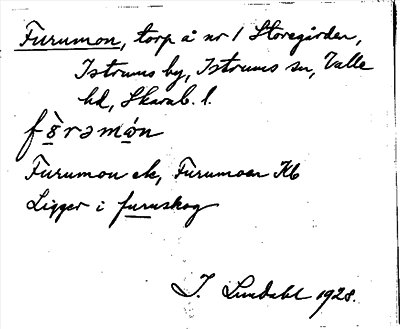 Furumon, torp å nr 1 Storegården,
Istrums by, Istrums sn, Valle
hd, Skarab. l.
fə̀rəmón
Furumon ek, Furumoar Kb
Ligger i furuskog
J. Lundahl 1928.